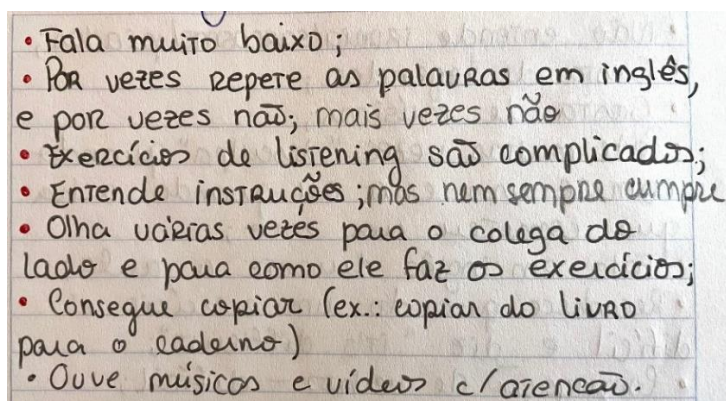 • Fala muito baixo;
• Por vezes repete as palavras em inglês,
e por vezes não; mais vezes não
• Exercícios de listening são complicados;
• Entende instruções; mas nem sempre cumpre
• Olha várias vezes para o colega do
lado e para como ele faz os exercícios;
• Consegue copiar (ex.: copiar do livro
para o caderno)
• Ouve músicas e vídeos c/atenção.